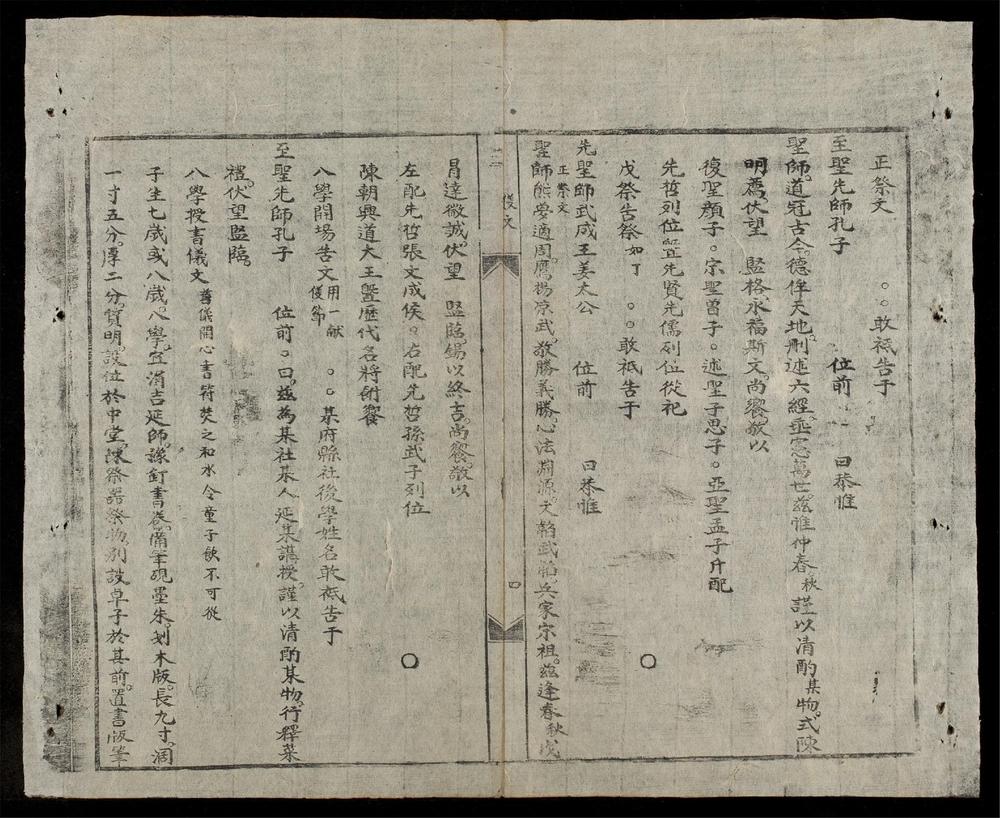 正祭文　　○○敢祗告于
至聖先師孔子　　位前　　曰恭惟
聖師。道冠古今。德侔天地。刪述六經。垂憲萬世。兹惟仲春秋謹以清酌某物。式陳
明薦。伏望　監格。永福斯文。尚饗。敬以
復聖顏子。宗聖曾子。述聖子思子。亞聖孟子廾配
先哲列位暨先賢先儒列位從祀
戊祭告祭如丁　○○敢祗告于　○
先聖師武成王姜太公　位前　曰恭惟
正祭文
聖師。熊夢適周。鷹揚凉武。敬勝義勝。心法淵源。文韜武韜。兵家宗祖。兹逢春秋戊
儀文
四
昌達微誠。伏望　監臨。錫以終吉。尚饗。敬以
左配先哲張文成侯。右配先哲孫武子列位　○
陳朝興道大王暨歷代名將附饗
入學開場告文用一献儀節　○○某府縣社後學姓名敢祗告于
至聖先師孔子　位前。曰。兹為某社某人。延某講授。謹以清酌某物。行釋菜
禮。伏望監臨。
入學授書儀文舊儀開心書符焚之和水令童子飲不可從
子生七歲或八歲。入學。宜涓吉延師。釘書卷。備筆硯墨朱。刬木版。長九寸。濶
一寸五分。厚二分。質明。設位於中堂。陳祭器祭物。別設卓子於其前。置書版筆